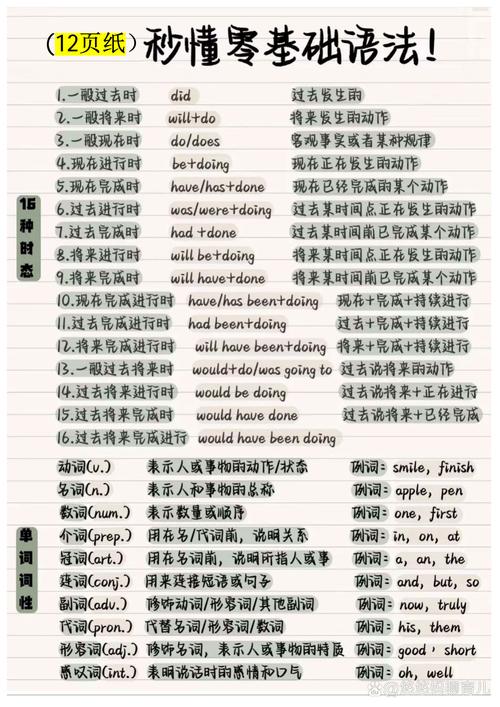 （12页纸）秒懂零基础语法！
1.一般过去时 did 过去发生的
2.一般将来时 will+do 将来发生的动作
3.一般现在时 do/does 客观事实或者某种规律
4.现在进行时 be+doing 现在正在发生的动作
5.现在完成时 have/has+done 现在已经完成的某个动作
16种时态
6.过去进行时 was/were+doing 过去某时间点正在发生的动作
7.过去完成时 had +done 过去某时间前已完成某个动作
8.将来进行时 will be+doing 将来某时间点正在发生的动作
9.将来完成时 will have+done 将来某时间前已完成某个动作
10.现在完成进行时 have/has been+doing 现在+完成+持续进行
11.过去完成进行时 had been+doing 过去+完成+持续进行
12.将来完成进行时 will have been+doing 将来+完成+持续进行
13.一般过去将来时 would+do/was going to 过去说将来的动作
14.过去将来进行时 would be doing 过去说将来+正在进行
15.过去将来完成时 would have done 过去说将来+已经完成
16.过去将来完成进行 would have been doing
动词(v.) 表示人或事物的动作/状态 例词：smile, finish
名词(n.) 表示人和事物的总称 例词：apple, pen
数词(num.) 表示数量或顺序 例词：one, first
单词词性
介词(prep.) 用在名/代词前，说明关系 例词：in, on, at
冠词(art.) 用在名词前，说明所指人或事 例词：a, an, the
连词(conj.) 用来连接短语或句子 例词：and, but, so
副词(adv.) 修饰动词/形容词/其他副词 例词：now, truly
代词(pron.) 代替名词/形容词/数词 例词：his, them
形容词(adj.) 修饰名词，表示人或事物的特质 例词：good，short
感叹词(int.) 表明说话时的感情和口气 例词：oh, well